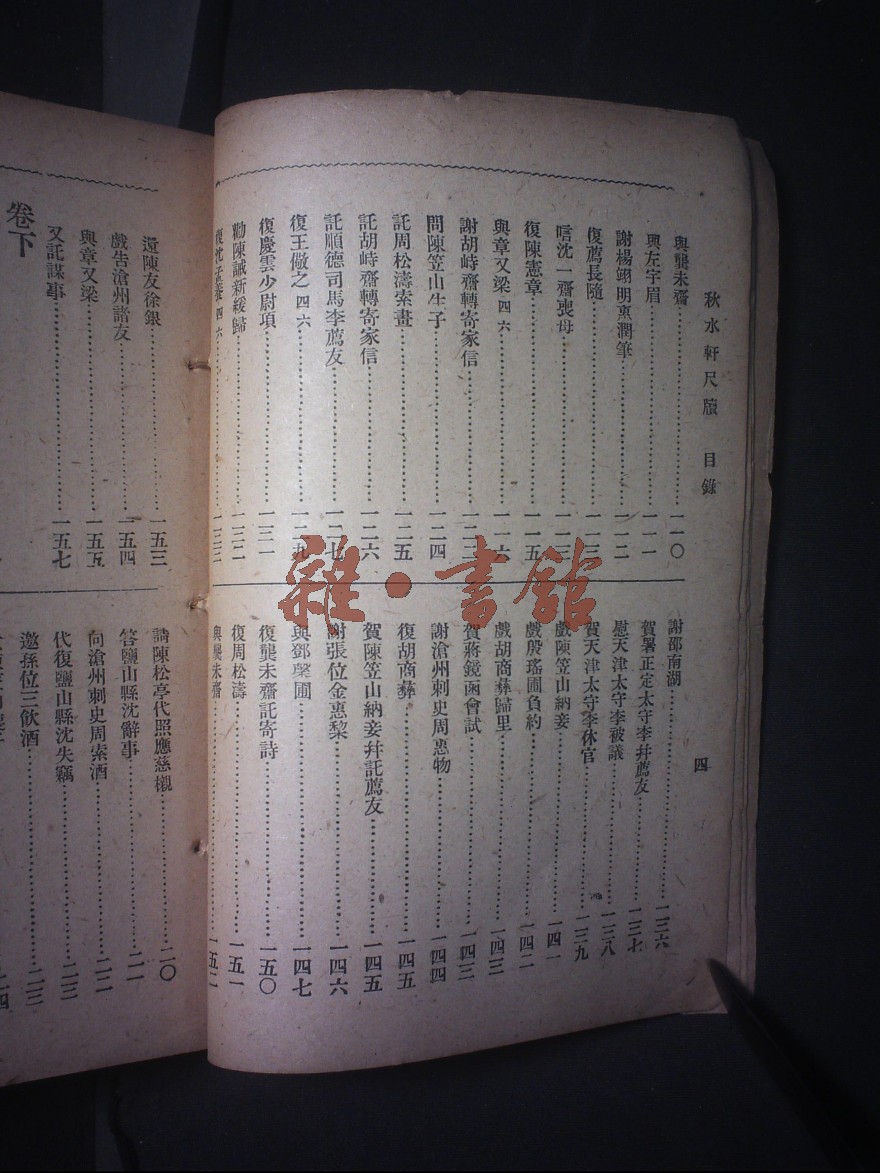 秋水軒尺牘　目錄
四
與龔未齋……一一〇
與左宇眉……一一一
謝楊翊明惠潤筆……一一二
復薦長隨……一一三
唁沈一齋喪母……一一三
復陳憲章……一一五
與章又梁 四六……一一六
謝胡峙齋轉寄家信……一二三
問陳笠山生子……一二四
託周松濤索畫……一二五
託胡峙齋轉寄家信……一二六
託順德司馬李薦友……一二七
復王儆之 四六……一二九
復慶雲少尉項……一三一
勸陳誠新緩歸……一三二
復沈子 四六……一三三
謝邵南湖……一三六
賀署正定太守李幷薦友……一三七
慰天津太守李被議……一三八
賀天津太守李休官……一三九
戲陳笠山納妾……一四一
戲殷瑤圃負約……一四二
戲胡商彝歸里……一四三
賀蔣鏡函會試……一四三
謝滄州刺史周惠物……一四四
復胡商彝……一四五
賀陳笠山納妾幷託薦友……一四五
謝張位金惠棃……一四六
與鄧槼圃……一四七
復龔未齋託寄詩……一五〇
復周松濤……一五一
與龔未齋……一五二
還陳友徐銀……一五三
戲告滄州諸友……一五四
與章又梁……一五五
又託謀事……一五七
卷下
請陳松亭代照應慈櫬……二〇
答鹽山縣沈辭事……二一
向滄州刺史周索酒……二二
代復鹽山縣沈失竊……二三
邀孫位三飲酒……二三
雜·書館